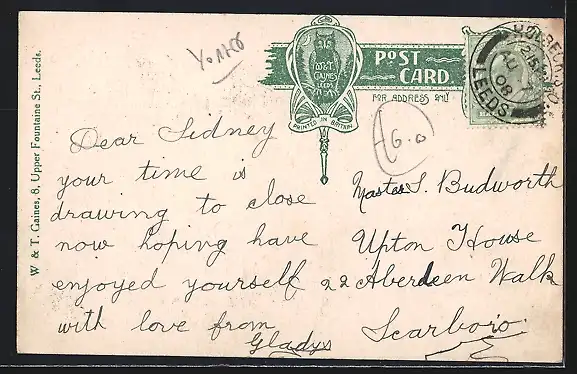 W & T. Gaines, 8, Upper Fountaine St., Leeds.
W&T.
GAINES
LEEDS
PRINTED IN BRITAIN
POST
CARD.
FOR ADDRESS ONLY
LEEDS
08
Dear Sidney
your time is
drawing to close
now hoping have
enjoyed yourself
with love from
Gladys
Master S. Budworth
Upton House
22 Aberdeen Walk
Scarboro.